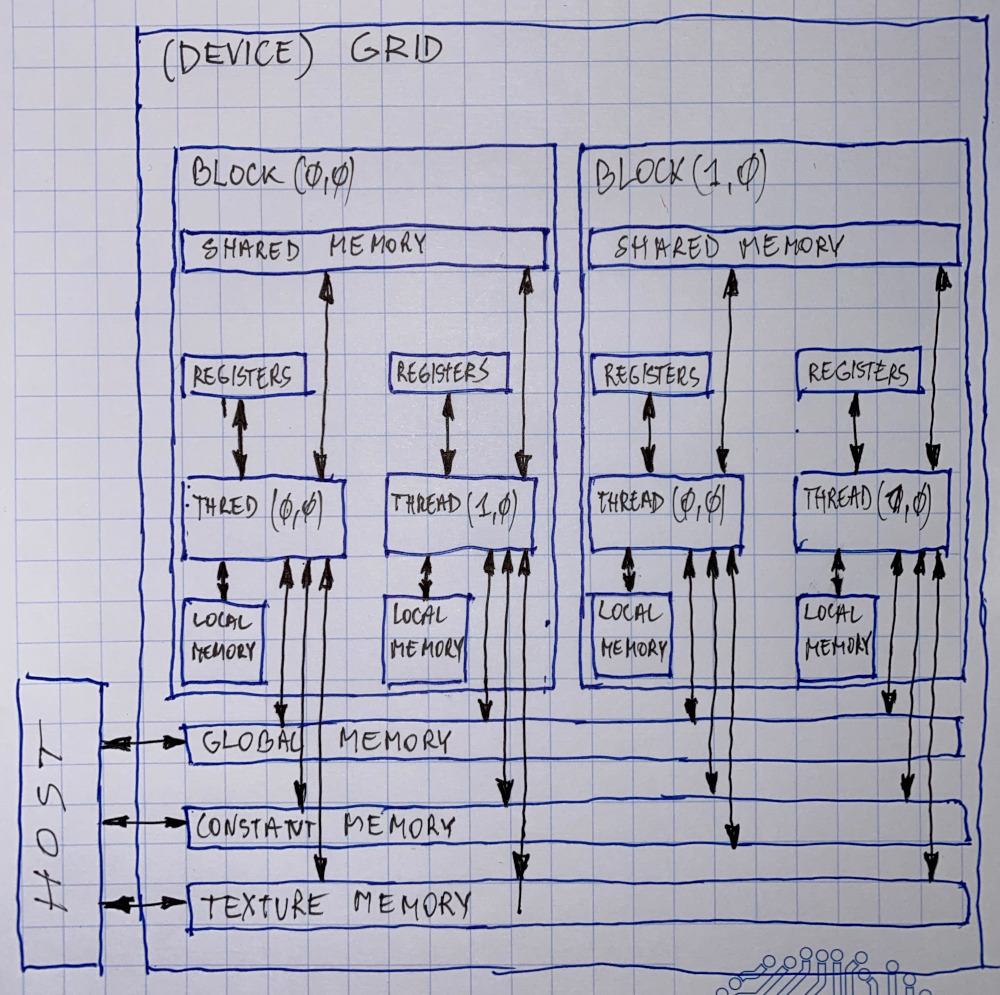 (DEVICE) GRID
BLOCK (0,0)
SHARED MEMORY
REGISTERS
REGISTERS
THRED (0,0)
THREAD (1,0)
LOCAL
MEMORY
LOCAL
MEMORY
BLOCK (1,0)
SHARED MEMORY
REGISTERS
REGISTERS
THREAD (0,0)
THREAD (0,0)
LOCAL
MEMORY
LOCAL
MEMORY
HOST
GLOBAL MEMORY
CONSTANT MEMORY
TEXTURE MEMORY